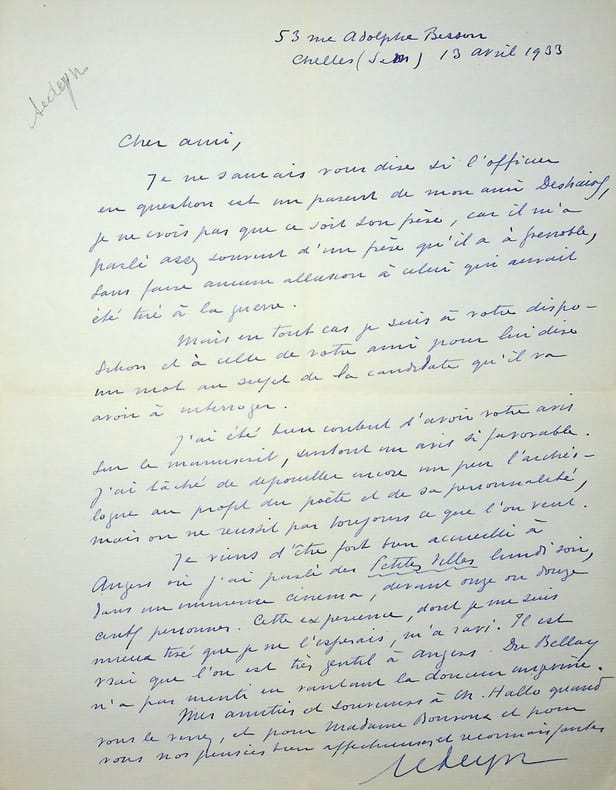 53 rue Adolphe Besson
Chelles (S&M) 13 avril 1933
Cher ami,
Je ne saurais vous dire si l'officier
en question est un parent de mon ami Deshairs,
je ne crois pas que ce soit son frère, car il m'a
parlé assez souvent d'un frère qu'il a à Grenoble,
sans faire aucune allusion à celui qui aurait
été tué à la guerre.
Mais en tout cas je suis à votre dispo-
sition et à celle de votre ami pour lui dire
un mot au sujet de la candidate qu'il va
avoir à interroger.
J'ai été bien content d'avoir votre avis
sur le manuscrit, surtout un avis si favorable.
J'ai tâché de dépouiller encore un peu l'archéo-
logue au profit du poète et de sa personnalité,
mais on ne réussit pas toujours ce que l'on veut.
Je viens d'être fort bien accueilli à
Angers où j'ai parlé des Petites Villes lundi soir,
dans un immense cinéma, devant onze ou douze
cents personnes. Cette expérience, dont je me suis
mieux tiré que je ne l'espérais, m'a ravi. Il est
vrai que l'on est très gentil à Angers. Du Bellay
n'a pas menti en vantant la douceur angevine.
Mes amitiés et souvenirs à Ch. Hallo quand
vous le verrez, et pour Madame et pour
vous nos pensées bien affectueuses et reconnaissantes